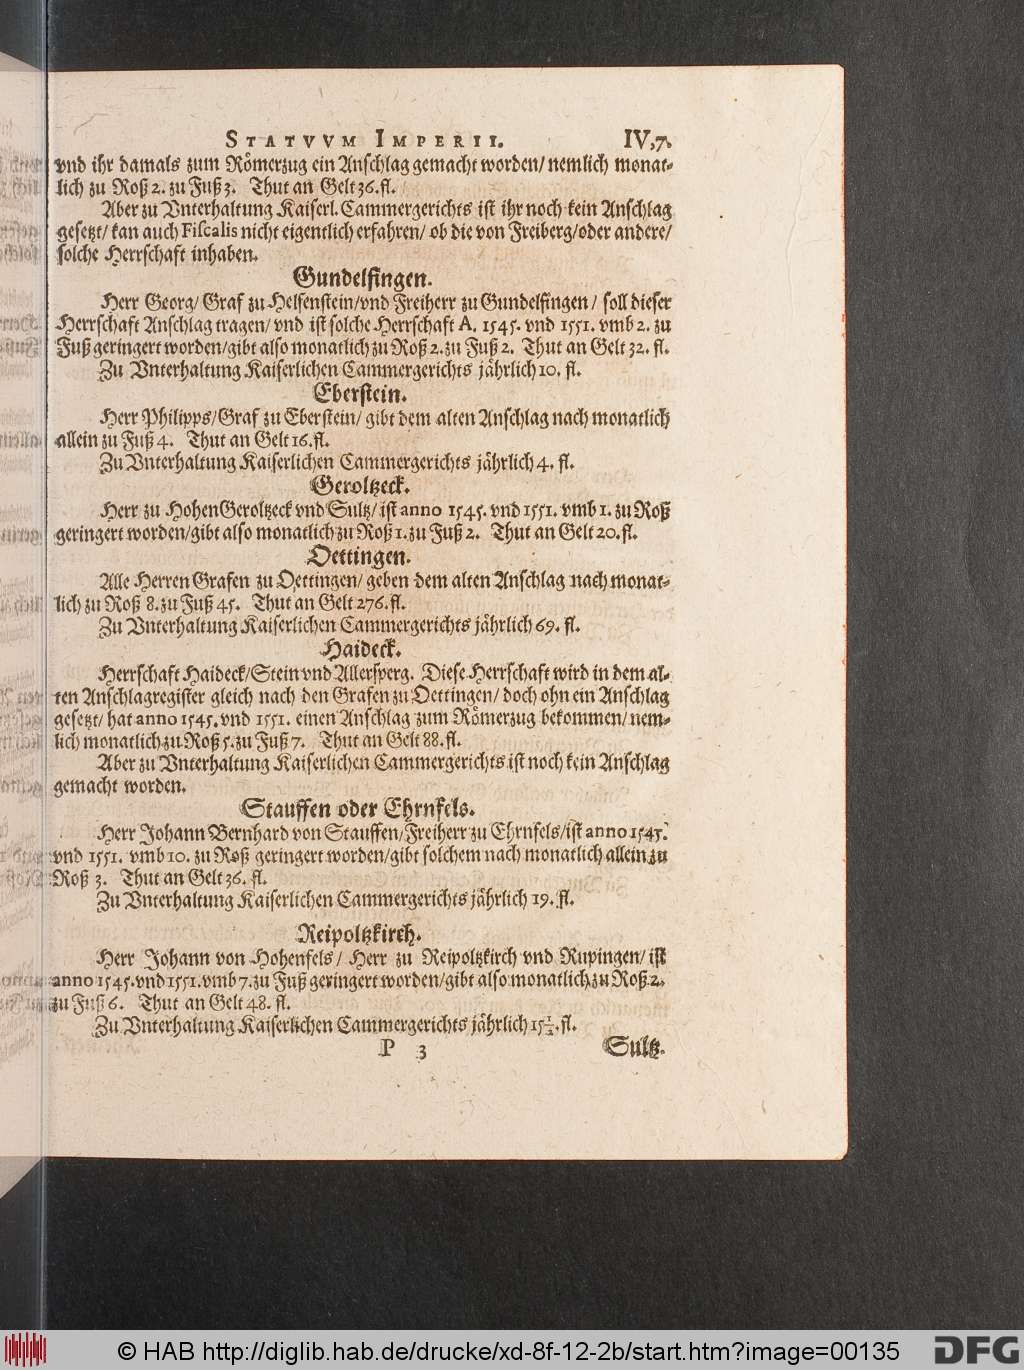 STATVVM IMPERII. IV,7.
vnd ihr damals zum Römerzug ein Anschlag gemacht worden/ nemlich monat-
lich zu Roß 2. zu Fuß 3. Thut an Gelt 36. fl.
Aber zu Vnterhaltung Kaiserl. Cammergerichts ist ihr noch kein Anschlag
gesetzt/ kan auch Fiscalis nicht eigentlich erfahren/ ob die von Freiberg/oder andere/
solche Herrschaft inhaben.
Gundelfingen.
Herr Georg/ Graf zu Helfenstein/vnd Freiherr zu Gundelfingen/ soll dieser
Herrschaft Anschlag tragen/ vnd ist solche Herrschaft A. 1545. vnd 1551. vmb 2. zu
Fuß geringert worden/gibt also monatlich zu Roß 2. zu Fuß 2. Thut an Gelt 32. fl.
Zu Vnterhaltung Kaiserlichen Cammergerichts jährlich 10. fl.
Eberstein.
Herr Philipps/Graf zu Eberstein/ gibt dem alten Anschlag nach monatlich
allein zu Fuß 4. Thut an Gelt 16. fl.
Zu Vnterhaltung Kaiserlichen Cammergerichts jährlich 4. fl.
Geroltzeck.
Herr zu HohenGeroltzeck vnd Sultz/ ist anno 1545. vnd 1551. vmb 1. zu Roß
geringert worden/gibt also monatlich zu Roß 1. zu Fuß 2. Thut an Gelt 20. fl.
Oettingen.
Alle Herren Grafen zu Oettingen/ geben dem alten Anschlag nach monat-
lich zu Roß 8. zu Fuß 45. Thut an Gelt 276. fl.
Zu Vnterhaltung Kaiserlichen Cammergerichts jährlich 69. fl.
Haideck.
Herrschaft Haideck/Stein vnd Allersperg. Diese Herrschaft wird in dem al-
ten Anschlagregister gleich nach den Grafen zu Oettingen/ doch ohn ein Anschlag
gesetzt/ hat anno 1545. vnd 1551. einen Anschlag zum Römerzug bekommen/ nem-
lich monatlich zu Roß 5. zu Fuß 7. Thut an Gelt 88. fl.
Aber zu Vnterhaltung Kaiserlichen Cammergerichts ist noch kein Anschlag
gemacht worden.
Stauffen oder Ehrnfels.
Herr Johann Bernhard von Stauffen/Freiherr zu Ehrnfels/ist anno 1545.
vnd 1551. vmb 10. zu Roß geringert worden/gibt solchem nach monatlich allein zu
Roß 3. Thut an Gelt 36. fl.
Zu Vnterhaltung Kaiserlichen Cammergerichts jährlich 19. fl.
Reipoltzkirch.
Herr Johann von Hohenfels/ Herr zu Reipoltzkirch vnd Rupingen/ ist
anno 1545. vnd 1551. vmb 7. zu Fuß geringert worden/gibt also monatlich zu Roß 2.
zu Fuß 6. Thut an Gelt 48. fl.
Zu Vnterhaltung Kaiserlichen Cammergerichts jährlich 15½. fl.
P 3 Sultz.
© HAB http://diglib.hab.de/drucke/xd-8f-12-2b/start.htm?image=00135
DFG